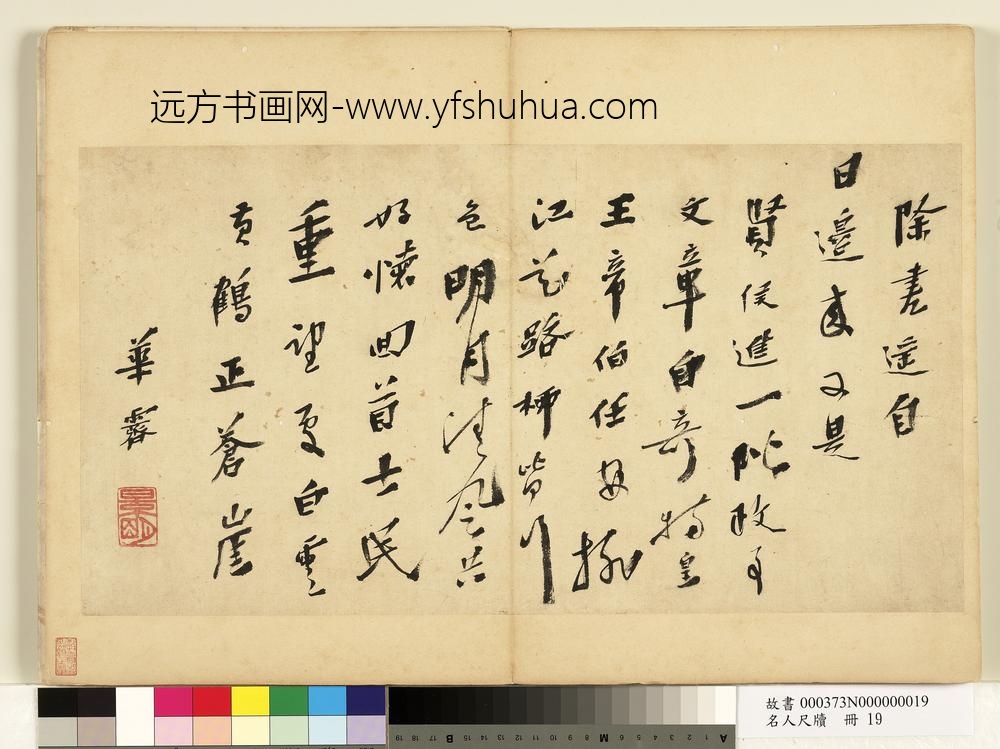 远方书画网-www.yfshuhua.com
除書遙自
日邊來又是
賢侯進一階政事
文章自奇特皇
王帝伯任安排
江花路柳皆行
色明月清風共
好懷回首士民
重望處白雲
黃鶴正蒼崖
華
故書 000373N000000019
名人尺牘 冊 19